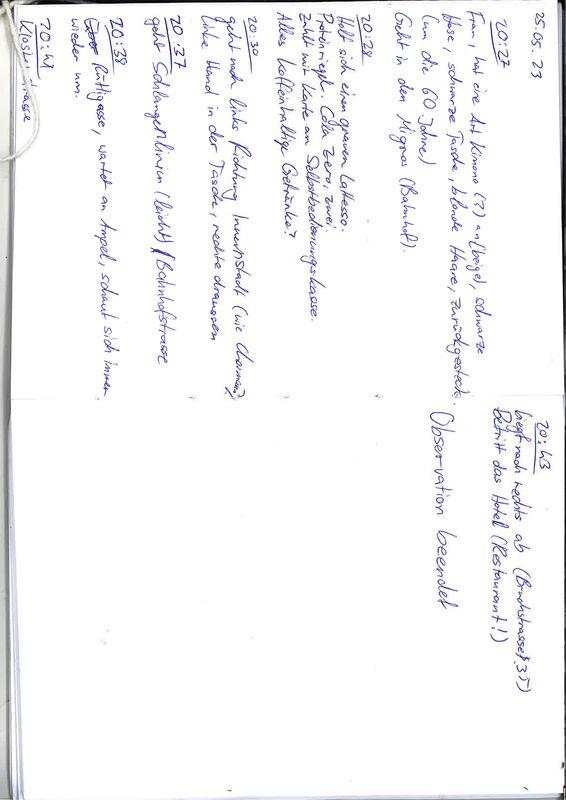 25.05.23
20:27
Frau, hat eine Art Kimono (?) an (beige), schwarze
Hose, schwarze Tasche, blonde Haare, zurückgesteckt.
(um die 60 Jahre)
Geht in den Migros (Bahnhof).
20:28
Holt sich einen grauen Lattesso.
Proteinriegel. Cola Zero, zwei.
Zahlt mit Karte an Selbstbedienungskasse.
Alles koffeinhaltige Getränke?
20:30
geht nach links Richtung Innenstadt (wie
linke Hand in der Tasche, rechte draussen
20:37
geht Schlangenlinien (leicht) / Bahnhofstrasse
20:38
Rütligasse, wartet an Ampel, schaut sich immer
wieder um.
20:41
Klosterstrasse
20:43
biegt nach rechts ab (Bruchstrasse 35)
Betritt das Hotel (Restaurant!)
Observation beendet